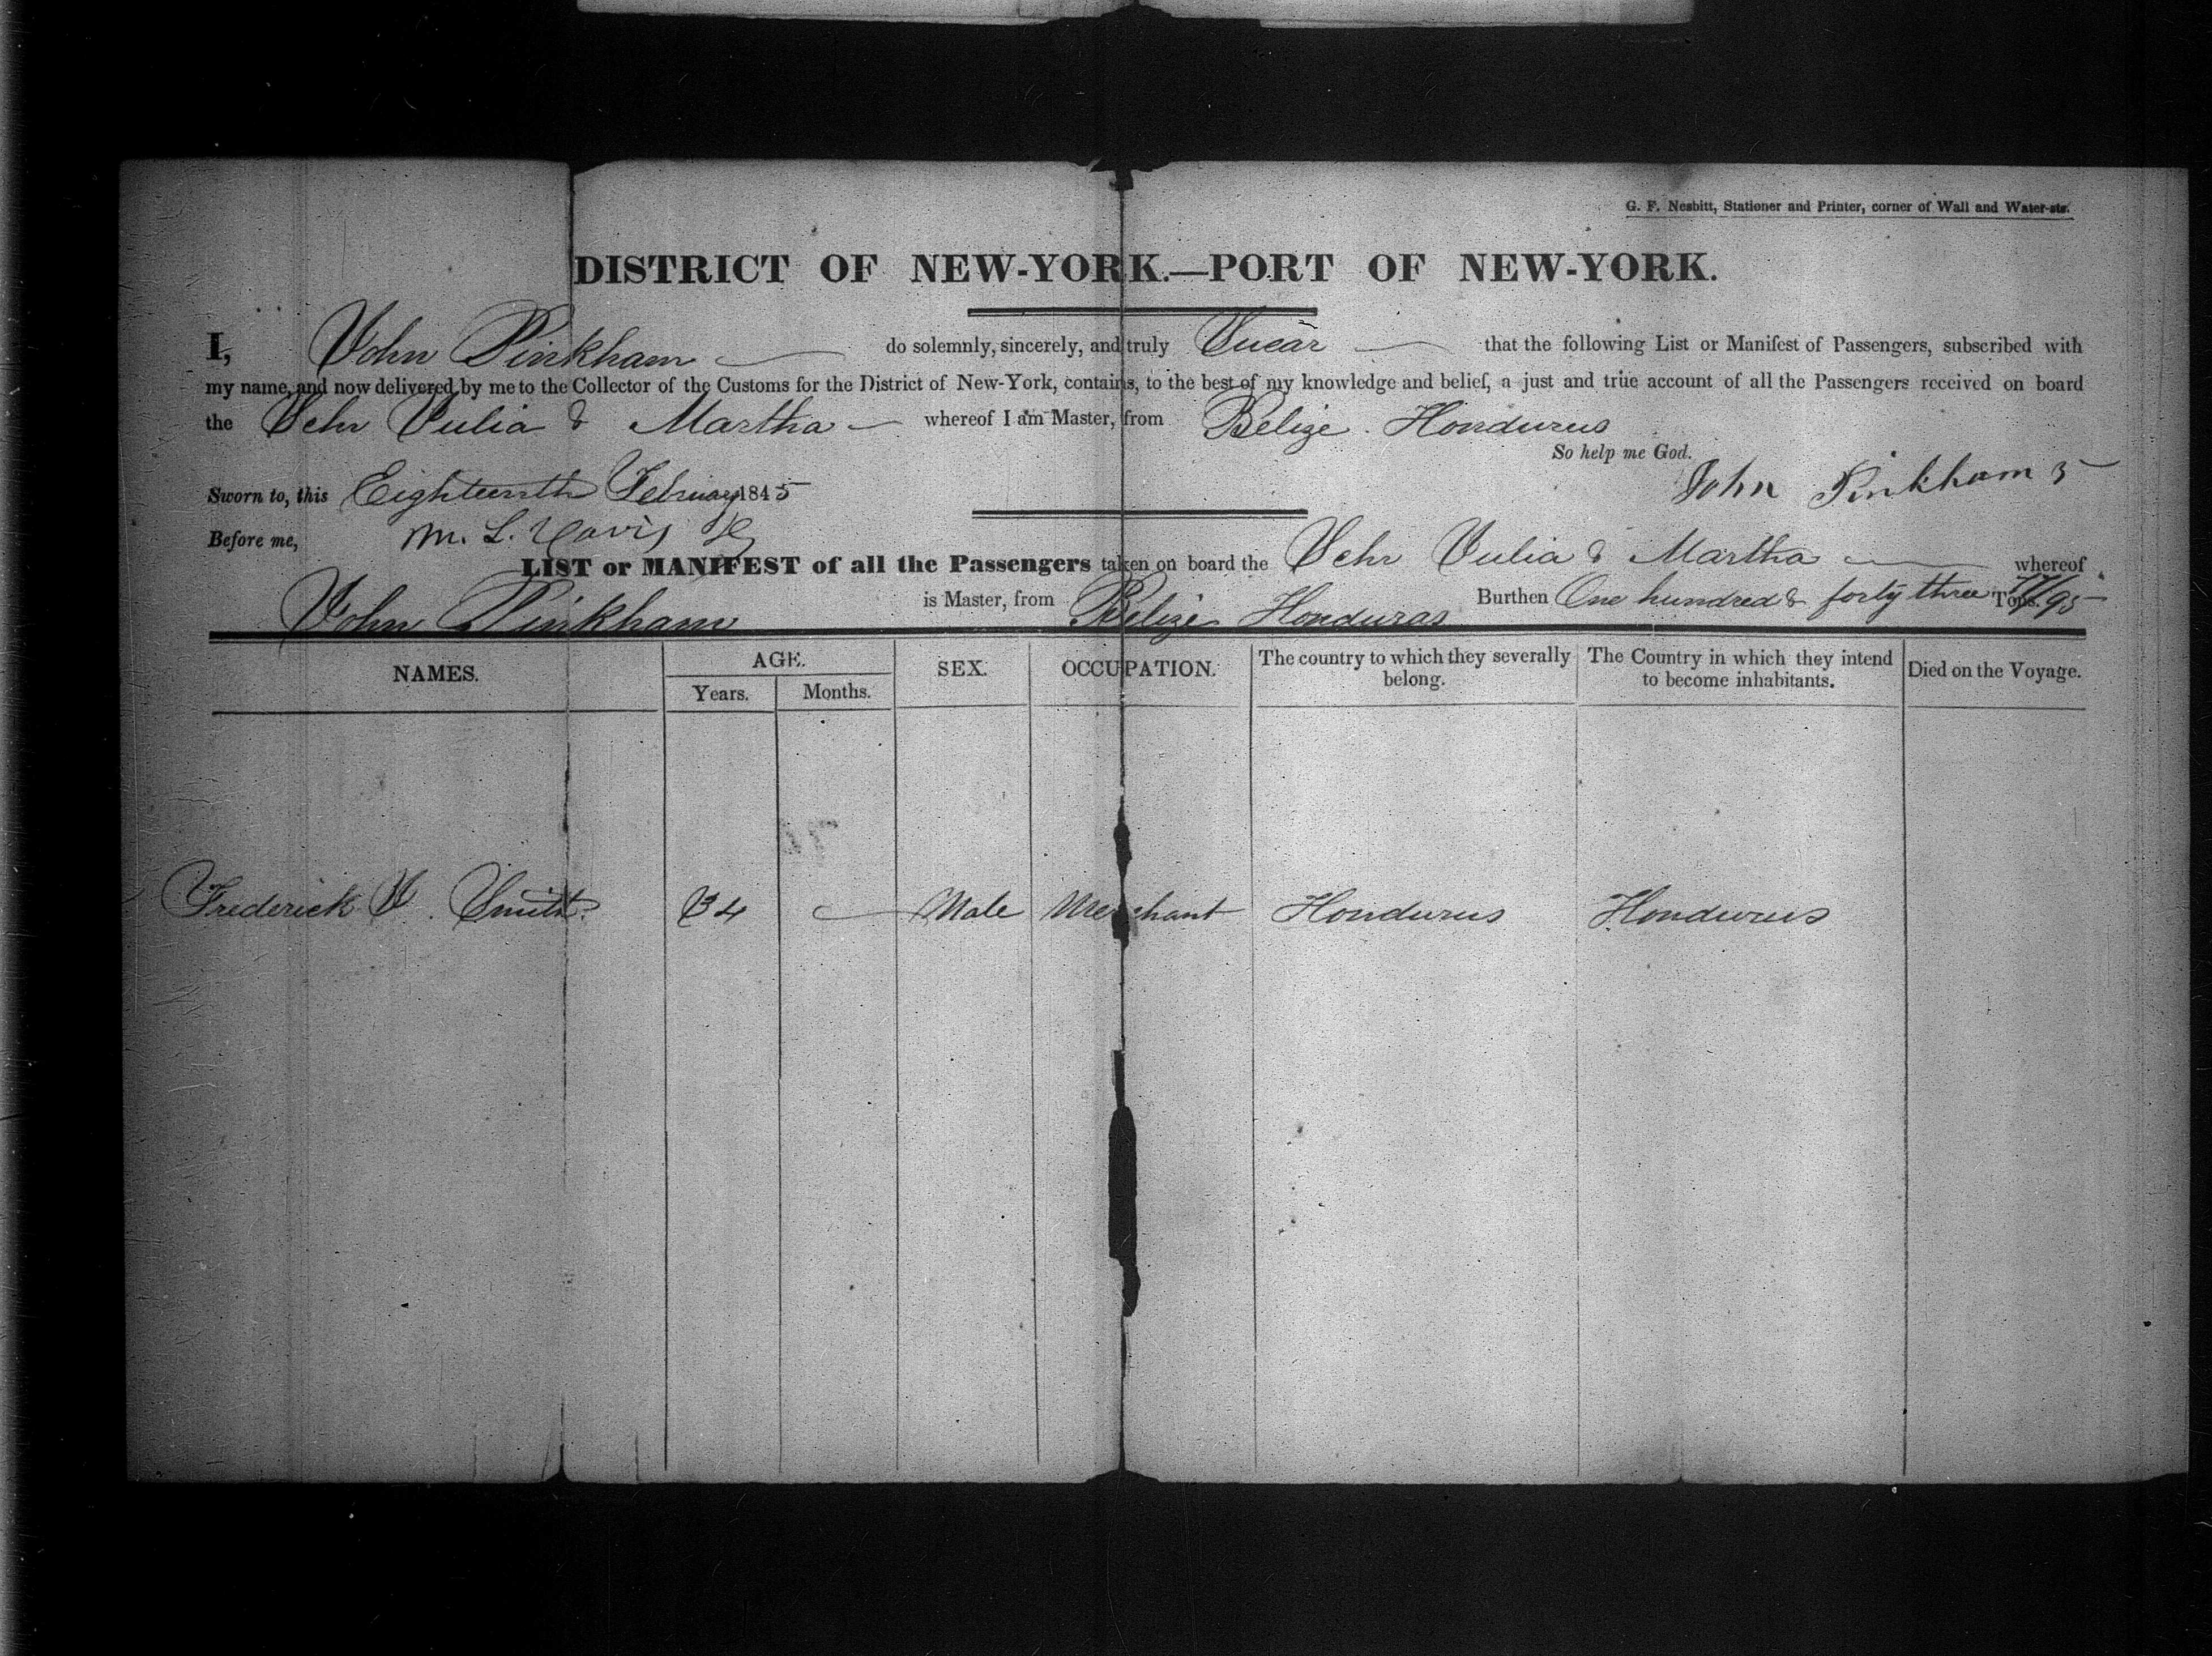 G. F. Nesbitt, Stationer and Printer, corner of Wall and Water-sts.
DISTRICT OF NEW-YORK.—PORT OF NEW-YORK.
I, John Pinkham do solemnly, sincerely, and truly Swear that the following List or Manifest of Passengers, subscribed with
my name, and now delivered by me to the Collector of the Customs for the District of New-York, contains, to the best of my knowledge and belief, a just and true account of all the Passengers received on board
the Schr Julia & Martha whereof I am Master, from Belize Hondurus
So help me God.
Sworn to, this Eighteenth February 1845 John Pinkham
Before me, M. L. Davis
LIST or MANIFEST of all the Passengers taken on board the Schr Julia & Martha whereof
John Pinkham is Master, from Belize Honduras Burthen One hundred & forty three Tons. /95
NAMES. AGE. SEX. OCCUPATION. The country to which they severally belong. The Country in which they intend to become inhabitants. Died on the Voyage.
Years. Months.
Frederick Smith 34 Male Merchant Hondurus Hondurus